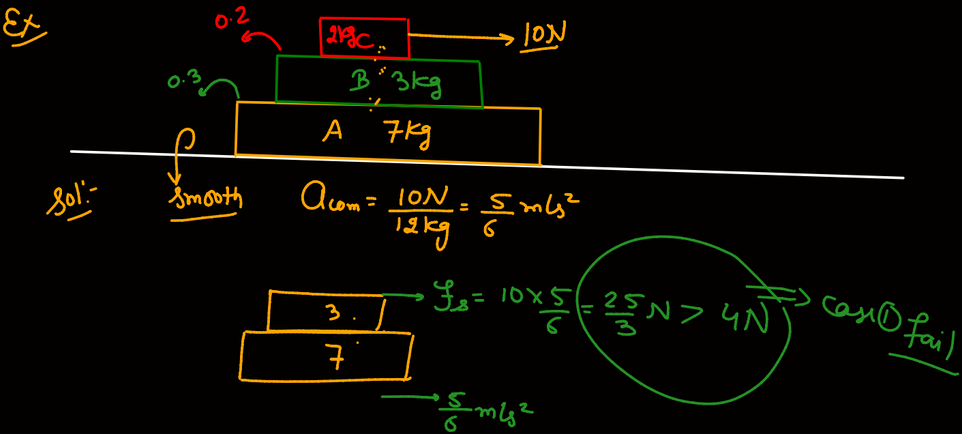 Ex
0.2
2kg C
10N
0.3
B 3kg
A 7kg
Sol:-
smooth
a com = 10N/12kg = 5/6 m/s²
3.
fs = 10 × 5/6 = 25/3 N > 4N ⇒ case ① fail
7
5/6 m/s²